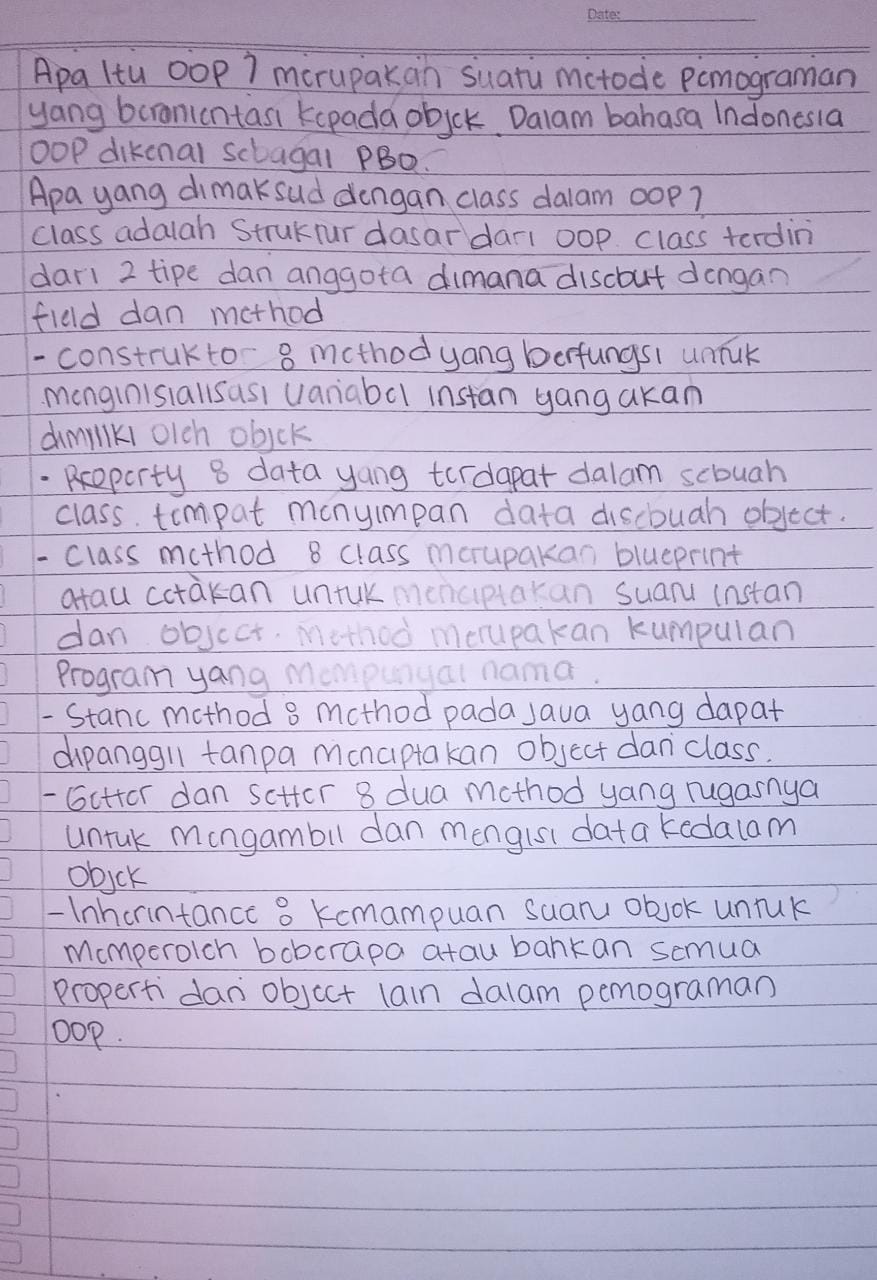 Date:
Apa Itu OOP ? merupakan suatu metode pemograman
yang berorientasi kepada objek. Dalam bahasa Indonesia
OOP dikenal sebagai PBO.
Apa yang dimaksud dengan class dalam OOP ?
Class adalah Struktur dasar dari OOP. Class terdiri
dari 2 tipe dan anggota dimana disebut dengan
field dan method
- Construktor : method yang berfungsi untuk
menginisialisasi variabel instan yang akan
dimiliki oleh objek
- Property : data yang terdapat dalam sebuah
class. tempat menyimpan data disebuah object.
- Class method : class merupakan blueprint
atau cetakan untuk menciptakan suatu instan
dan object. Method merupakan kumpulan
Program yang mempunyai nama.
- Static method : method pada Java yang dapat
dipanggil tanpa menciptakan object dari class.
- Getter dan Setter : dua method yang tugasnya
untuk mengambil dan mengisi data kedalam
objek
- Inherintance : kemampuan suatu objek untuk
memperoleh beberapa atau bahkan semua
Properti dari object lain dalam pemograman
OOP.